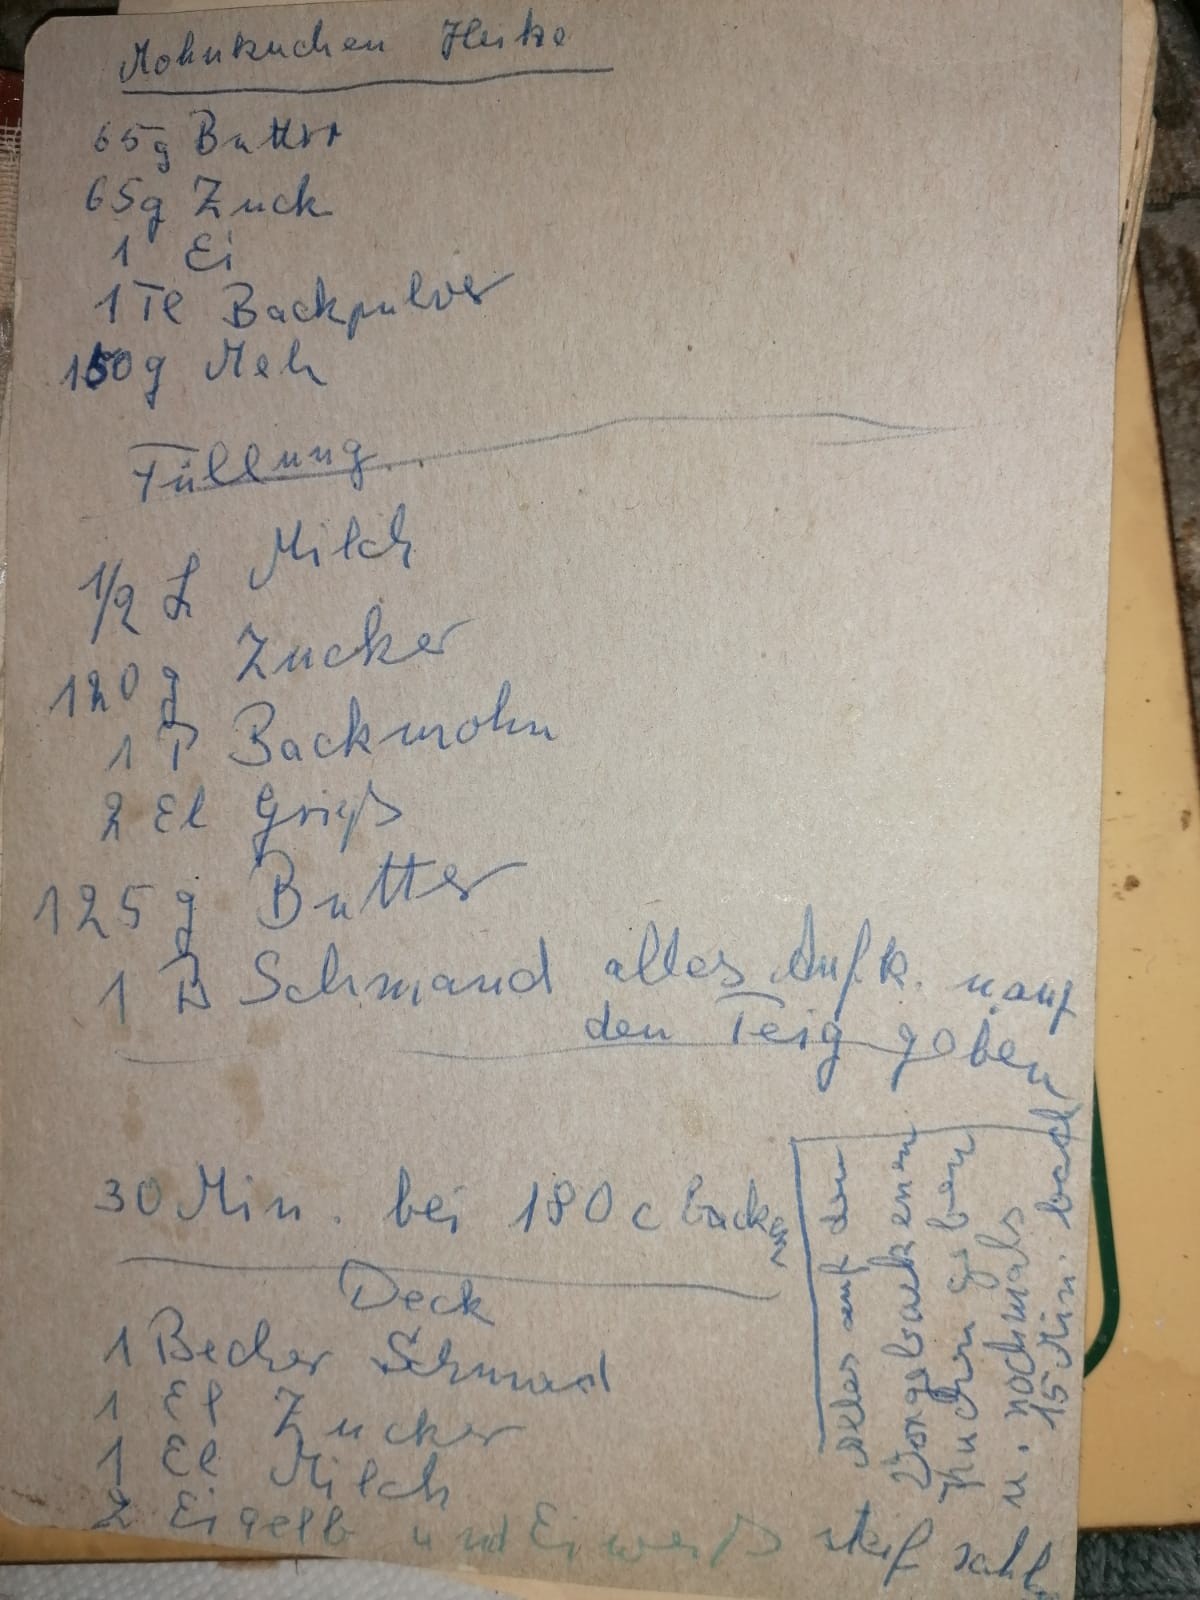 Mohnkuchen Heike
65g Butter
65g Zuck
1 Ei
1 Tl Backpulver
150g Meh
Füllung
1/2 L Milch
120 g Zucker
1 P Backmohn
2 El Grieß
125 g Butter
1 B Schmand alles Aufk. u. auf
den Teig geben
30 Min. bei 180 c backen
Deck
1 Becher Schmand
1 El Zucker
1 El Milch
2 Eigelb und Eiweiß steif schl
Alles auf den
Vorgebackenen
Kuchen geben
u. nochmals
15 Min. back